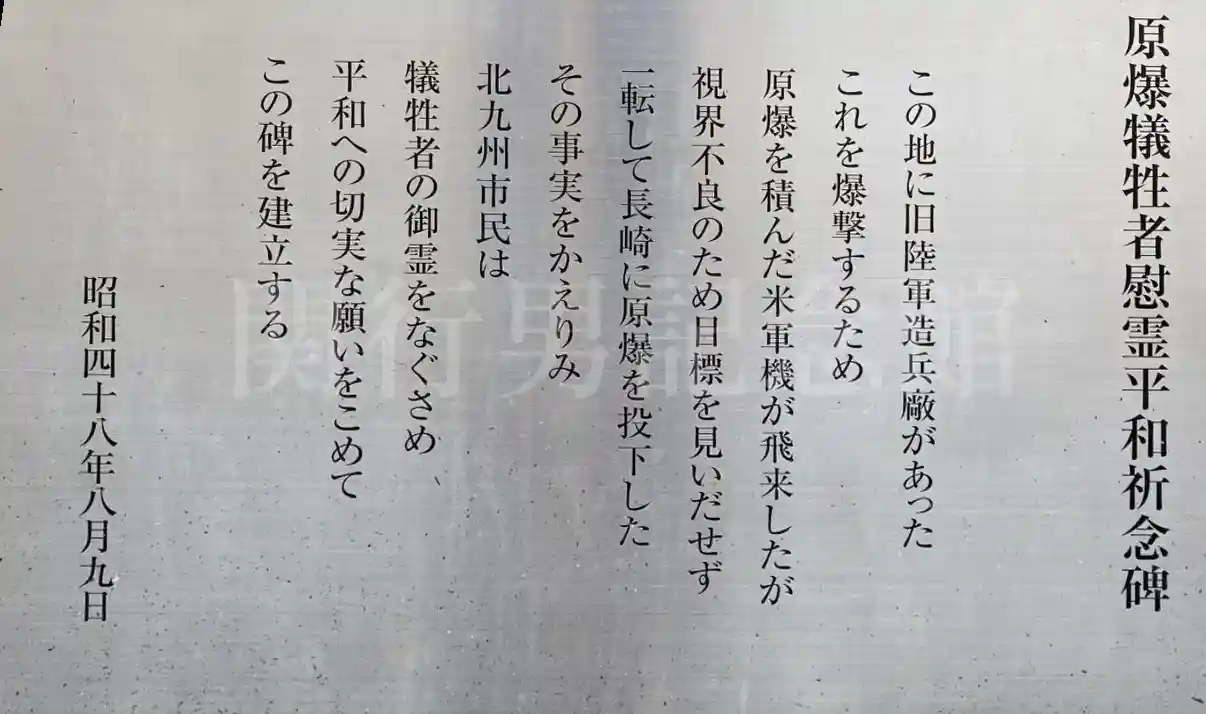 原爆犠牲者慰霊平和祈念碑
この地に旧陸軍造兵廠があった
これを爆撃するため
原爆を積んだ米軍機が飛来したが
視界不良のため目標を見いだせず
一転して長崎に原爆を投下した
その事実をかえりみ
北九州市民は
犠牲者の御霊をなぐさめ
平和への切実な願いをこめて
この碑を建立する
昭和四十八年八月九日
関行男記念館